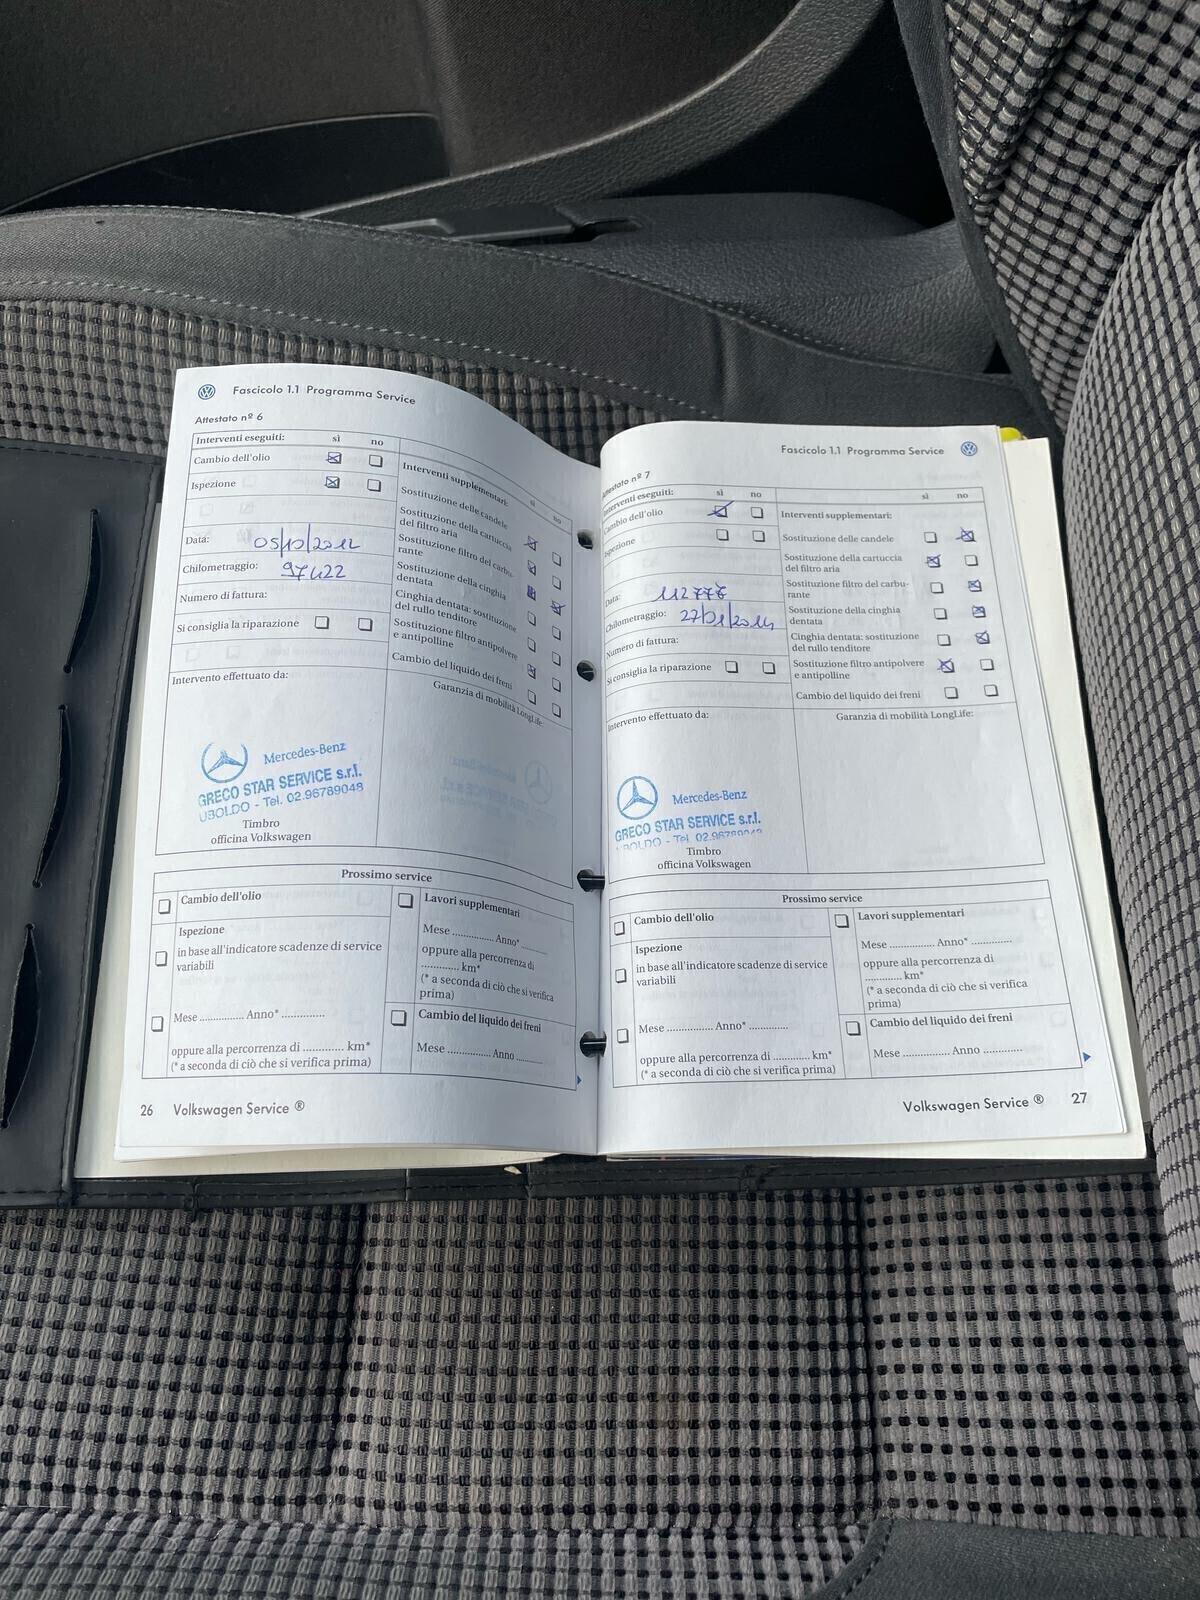 Fascicolo 1.1 Programma Service
Attestato nº 6
Interventi eseguiti:
sì
no
Cambio dell'olio
Ispezione
Data:
05/10/2012
Chilometraggio:
97422
Numero di fattura:
Si consiglia la riparazione
Intervento effettuato da:
Mercedes-Benz
GRECO STAR SERVICE s.r.l.
UBOLDO - Tel. 02.96789048
Timbro
officina Volkswagen
Interventi supplementari:
sì
no
Sostituzione delle candele
Sostituzione della cartuccia
del filtro aria
Sostituzione filtro del carbu-
rante
Sostituzione della cinghia
dentata
Cinghia dentata: sostituzione
del rullo tenditore
Sostituzione filtro antipolvere
e antipolline
Cambio del liquido dei freni
Garanzia di mobilità LongLife:
Prossimo service
Cambio dell'olio
Ispezione
in base all'indicatore scadenze di service
variabili
Mese ............... Anno* ...............
oppure alla percorrenza di ............ km*
(* a seconda di ciò che si verifica prima)
Lavori supplementari
Mese ............... Anno* ............
oppure alla percorrenza di
............ km*
(* a seconda di ciò che si verifica
prima)
Cambio del liquido dei freni
Mese ............... Anno .........
26 Volkswagen Service ®
Fascicolo 1.1 Programma Service
Attestato nº 7
Interventi eseguiti:
sì
no
Cambio dell'olio
Ispezione
Data:
Chilometraggio:
27/01/2014
Numero di fattura:
Si consiglia la riparazione
Intervento effettuato da:
Mercedes-Benz
GRECO STAR SERVICE s.r.l.
Timbro
officina Volkswagen
sì
no
Interventi supplementari:
Sostituzione delle candele
Sostituzione della cartuccia
del filtro aria
Sostituzione filtro del carbu-
rante
Sostituzione della cinghia
dentata
Cinghia dentata: sostituzione
del rullo tenditore
Sostituzione filtro antipolvere
e antipolline
Cambio del liquido dei freni
Garanzia di mobilità LongLife:
Prossimo service
Cambio dell'olio
Ispezione
in base all'indicatore scadenze di service
variabili
Mese ................ Anno* .............
oppure alla percorrenza di ............ km*
(* a seconda di ciò che si verifica prima)
Lavori supplementari
Mese ................ Anno* ..............
oppure alla percorrenza di
............ km*
(* a seconda di ciò che si verifica
prima)
Cambio del liquido dei freni
Mese ................ Anno ..............
Volkswagen Service ® 27